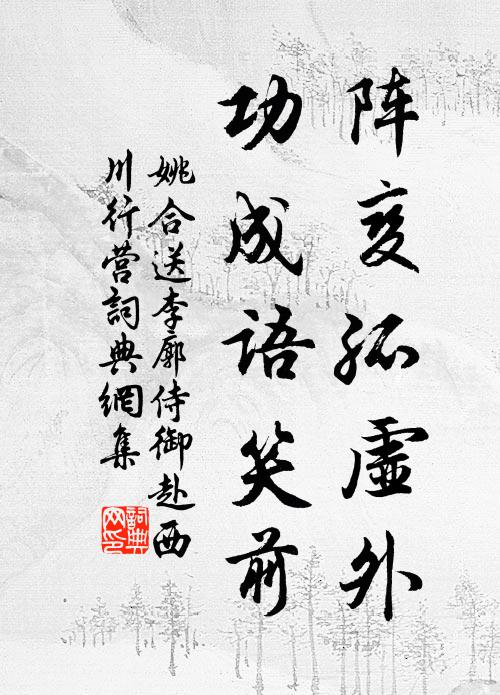 阵变孤虚外
功成语笑前
姚合送李廓侍御赴西
川行营詞典網集
詞典
网印